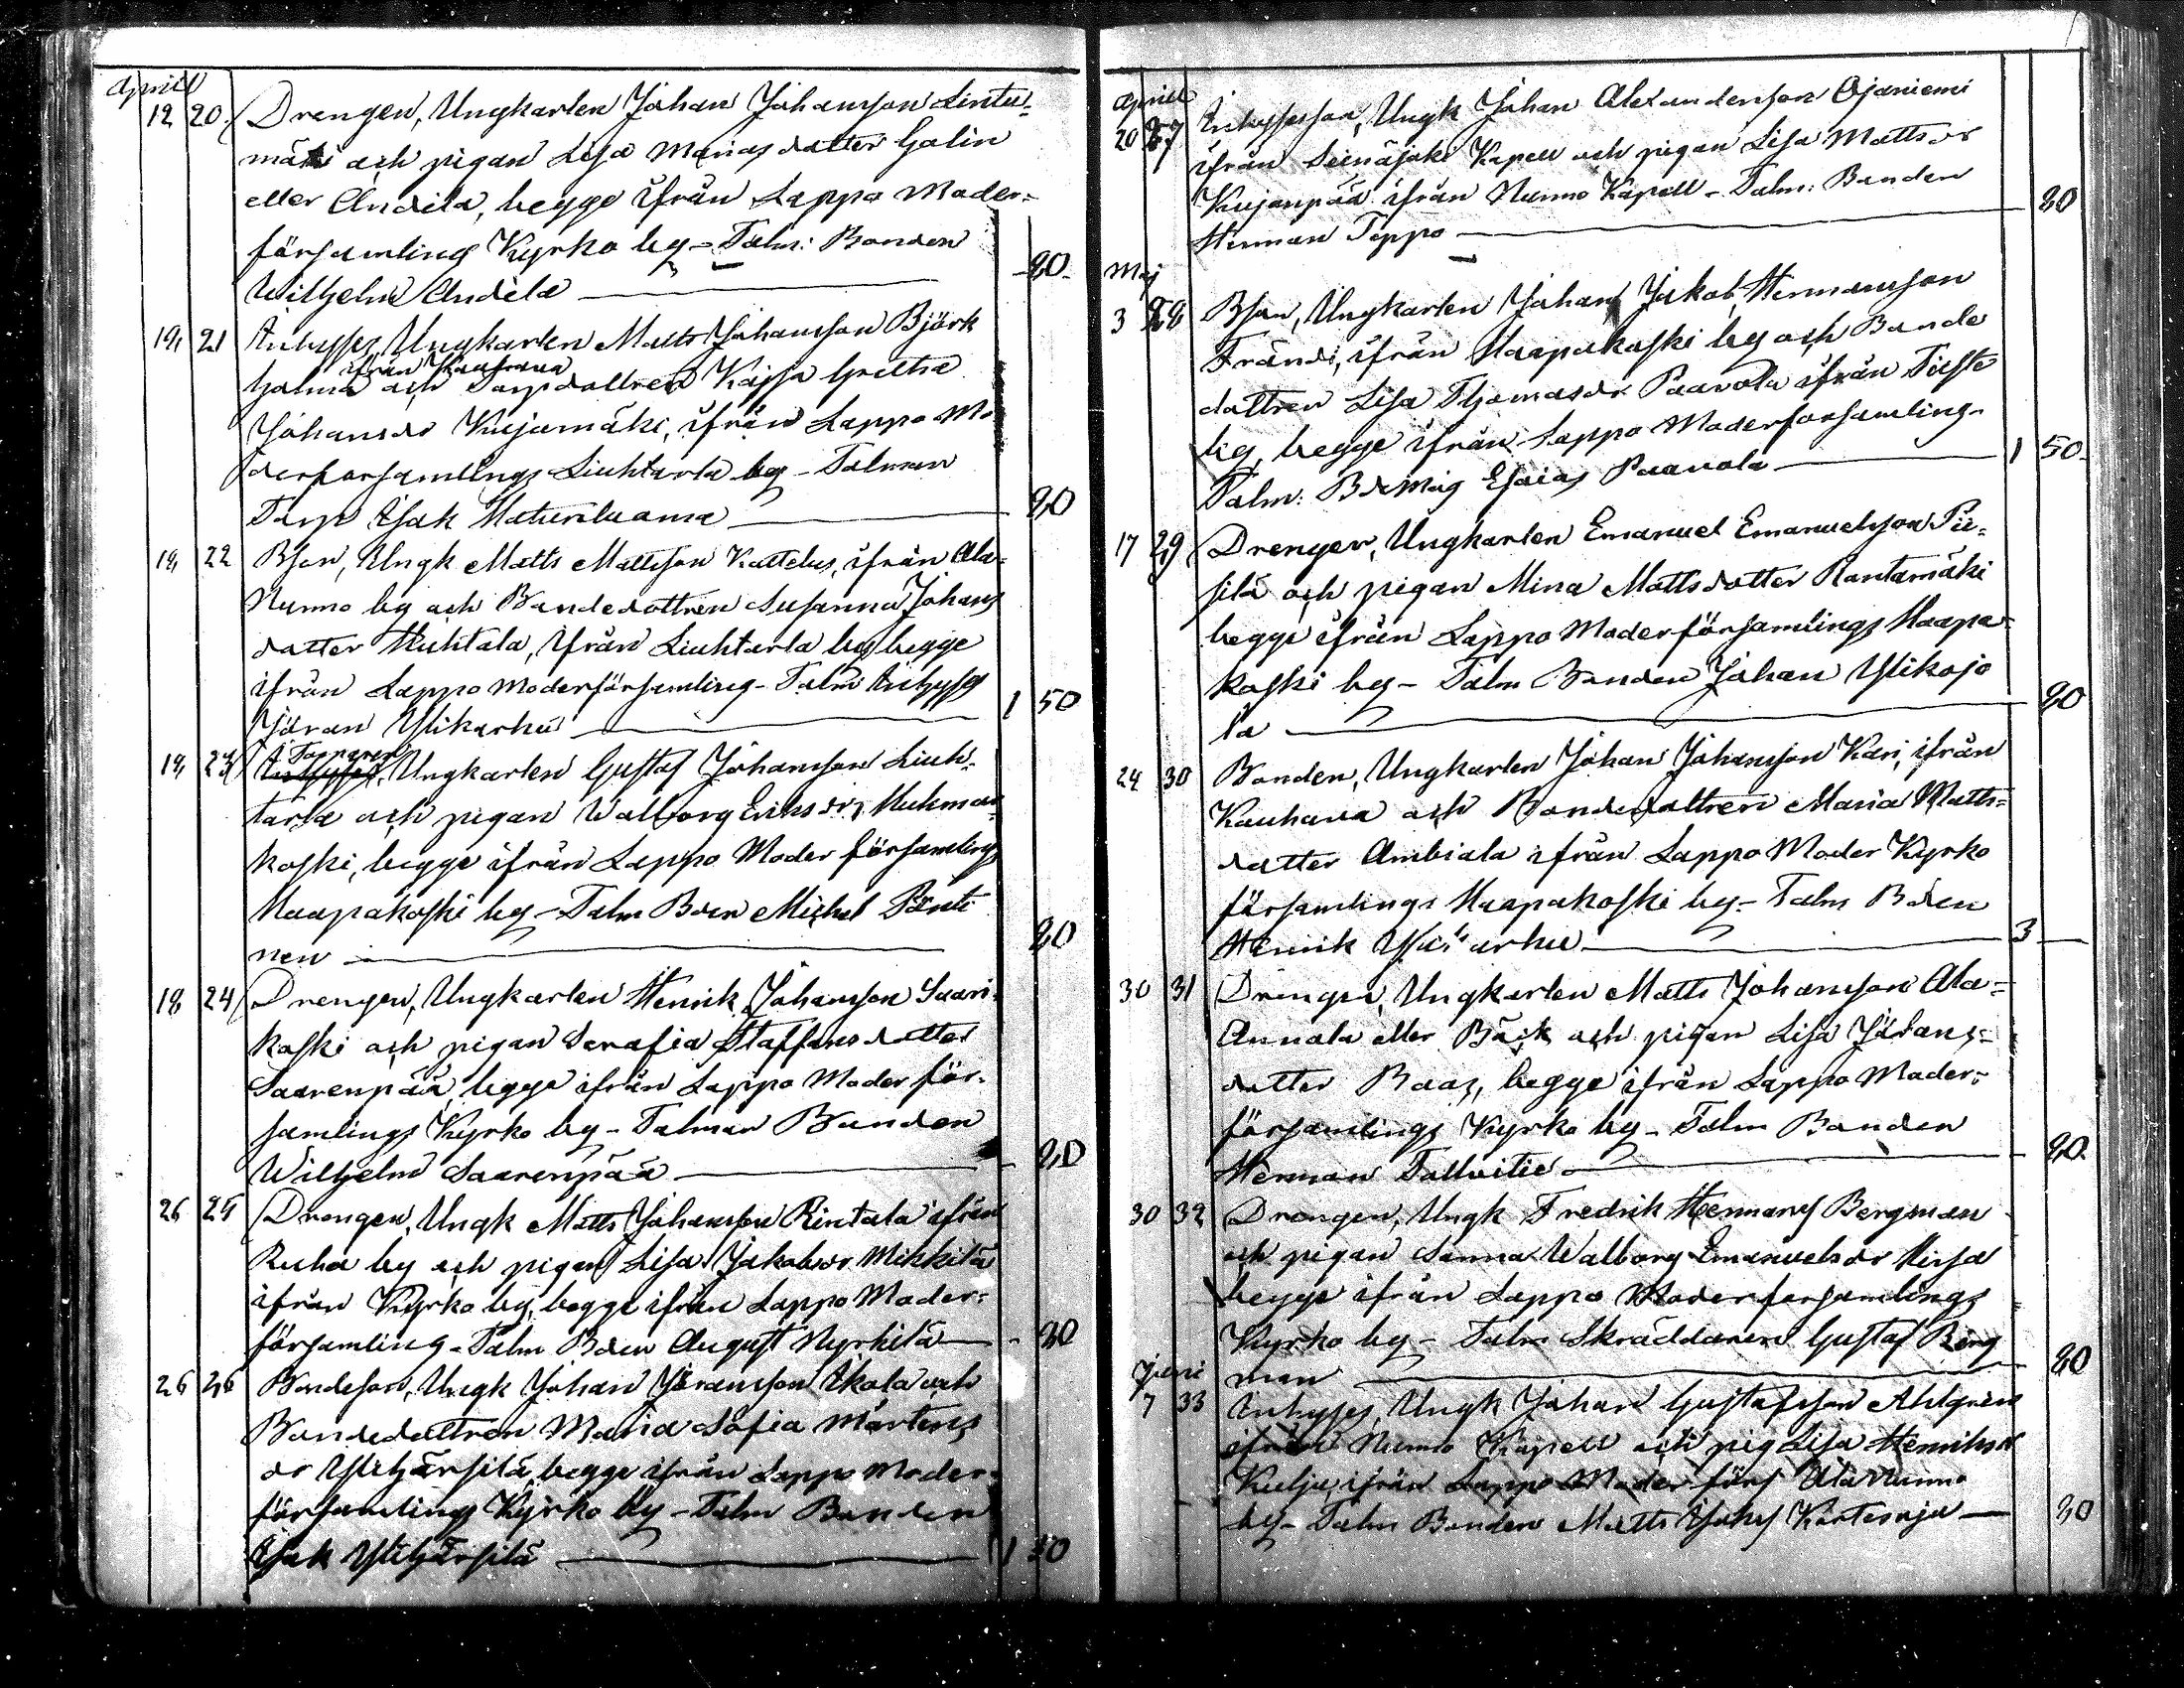 April
12 20. Drengen, Ungkarlen Johan Johansson Lintu-
mäki och pigan Lisa Mariasdotter Galin
eller Andila, begge ifrån Lappo Moder-
församlings Kyrko by - Talm: Bonden
Wilhelm Andila — 80
19 21 Inhysses, Ungkarlen Matts Johansson Björk
ifrån Kauhava
holma och Torpdottren Kajsa Greta
Johansdr Kujamäki, ifrån Lappo Mo
derforsamlings Liuhtarla by - Talman
Torp. Isak Haturiluoma — 80
19 22 Bson, Ungk Matts Mattsson Kattelus, ifrån Ala
Nurmo by och Bondedottren Susanna Johans
dotter Huhtala, ifrån Liuhtarla by begge
ifrån Lappo Moderförsamling - Talm: Inhysses
Jöran Ylikarhu — 1 50
19 23 Torparen
Inhysses, Ungkarlen Gustaf Johansson Liuh-
tarla och pigan Walborg Eriksdr Huhmar
koski, begge ifrån Lappo Moder församlings
Haapakoski by - Talm Bden Michel Pänti
nen — 80
18 24 Drengen, Ungkarlen Henrik Johansson Saari-
koski och pigan Serafia Staffansdotter
Saarenpää, begge ifrån Lappo Moder för-
samlings Kyrko by - Talman Bonden
Wilhelm Saarenpää — 80
26 25 Drengen, Ungk Matts Johansson Rintala ifrån
Ruha by och pigan Lisa Jakobsdr Mikkilä
ifrån Kyrko by, begge ifrån Lappo Moder-
församling - Talm Bden August Nyrhilä — 80
26 26 Bondeson, Ungk Johan Jöransson Ikola och
Bondedottren Maria Sofia Mårtens
dr Ylihärsilä, begge ifrån Lappo Moder
församlings Kyrko by - Talm Bonden
Isak Ylihärsilä — 1 50
April
20 27 Inhyssesson, Ungk Johan Alexandersson Ojaniemi
ifrån Seinäjoki Kapell och pigan Lisa Mattsdr
Kujanpää ifrån Nurmo Kapell - Talm: Bonden
Herman Teppo — 80
Maj
3 28 Bson, Ungkarlen Johan Jakob Hermansson
Frändi, ifrån Haapakoski by och Bonde
dottren Lisa Thomasdr Paavola ifrån Tiisten
by, begge ifrån Lappo Moderforsamling -
Talm: Bdemåg Esaias Paavola — 1 50
17 29 Drengen, Ungkarlen Emanuel Emanuelsson Pii-
silä och pigan Mina Mattsdotter Rantamäki
begge ifrån Lappo Moderförsamlings Haapa-
koski by - Talm Bonden Johan Ylikojo
la — 80
24 30 Bonden, Ungkarlen Johan Johansson Kari, ifrån
Kauhava och Bondedottren Maria Matts-
dotter Ambiala ifrån Lappo Moder Kyrko
församlings Haapakoski by - Talm Bden
Henrik — 3 —
30 31 Drengen, Ungkarlen Matts Johansson Ala-
Annala eller Bäck och pigan Lisa Jörans-
dotter Baas, begge ifrån Lappo Moder-
församlings Kyrko by - Talm Bonden
Herman Tallvitie — 80
30 32 Drengen, Ungk Fredrik Hermans Bergman
och pigan Sanna Walborg Emanuelsdr Hirsa
begge ifrån Lappo Moderforsamlings
Kyrko by - Talm Skräddaren Gustaf Berg
man — 80
Juni
7 33 Inhysses, Ungk Johan Gustafsson Ahlgren
ifrån Nurmo Kapell och pig Lisa Henriksdr
Kulju, ifrån Lappo Moder förs Ala Nurmo
by - Talm Bonden Matts — 80